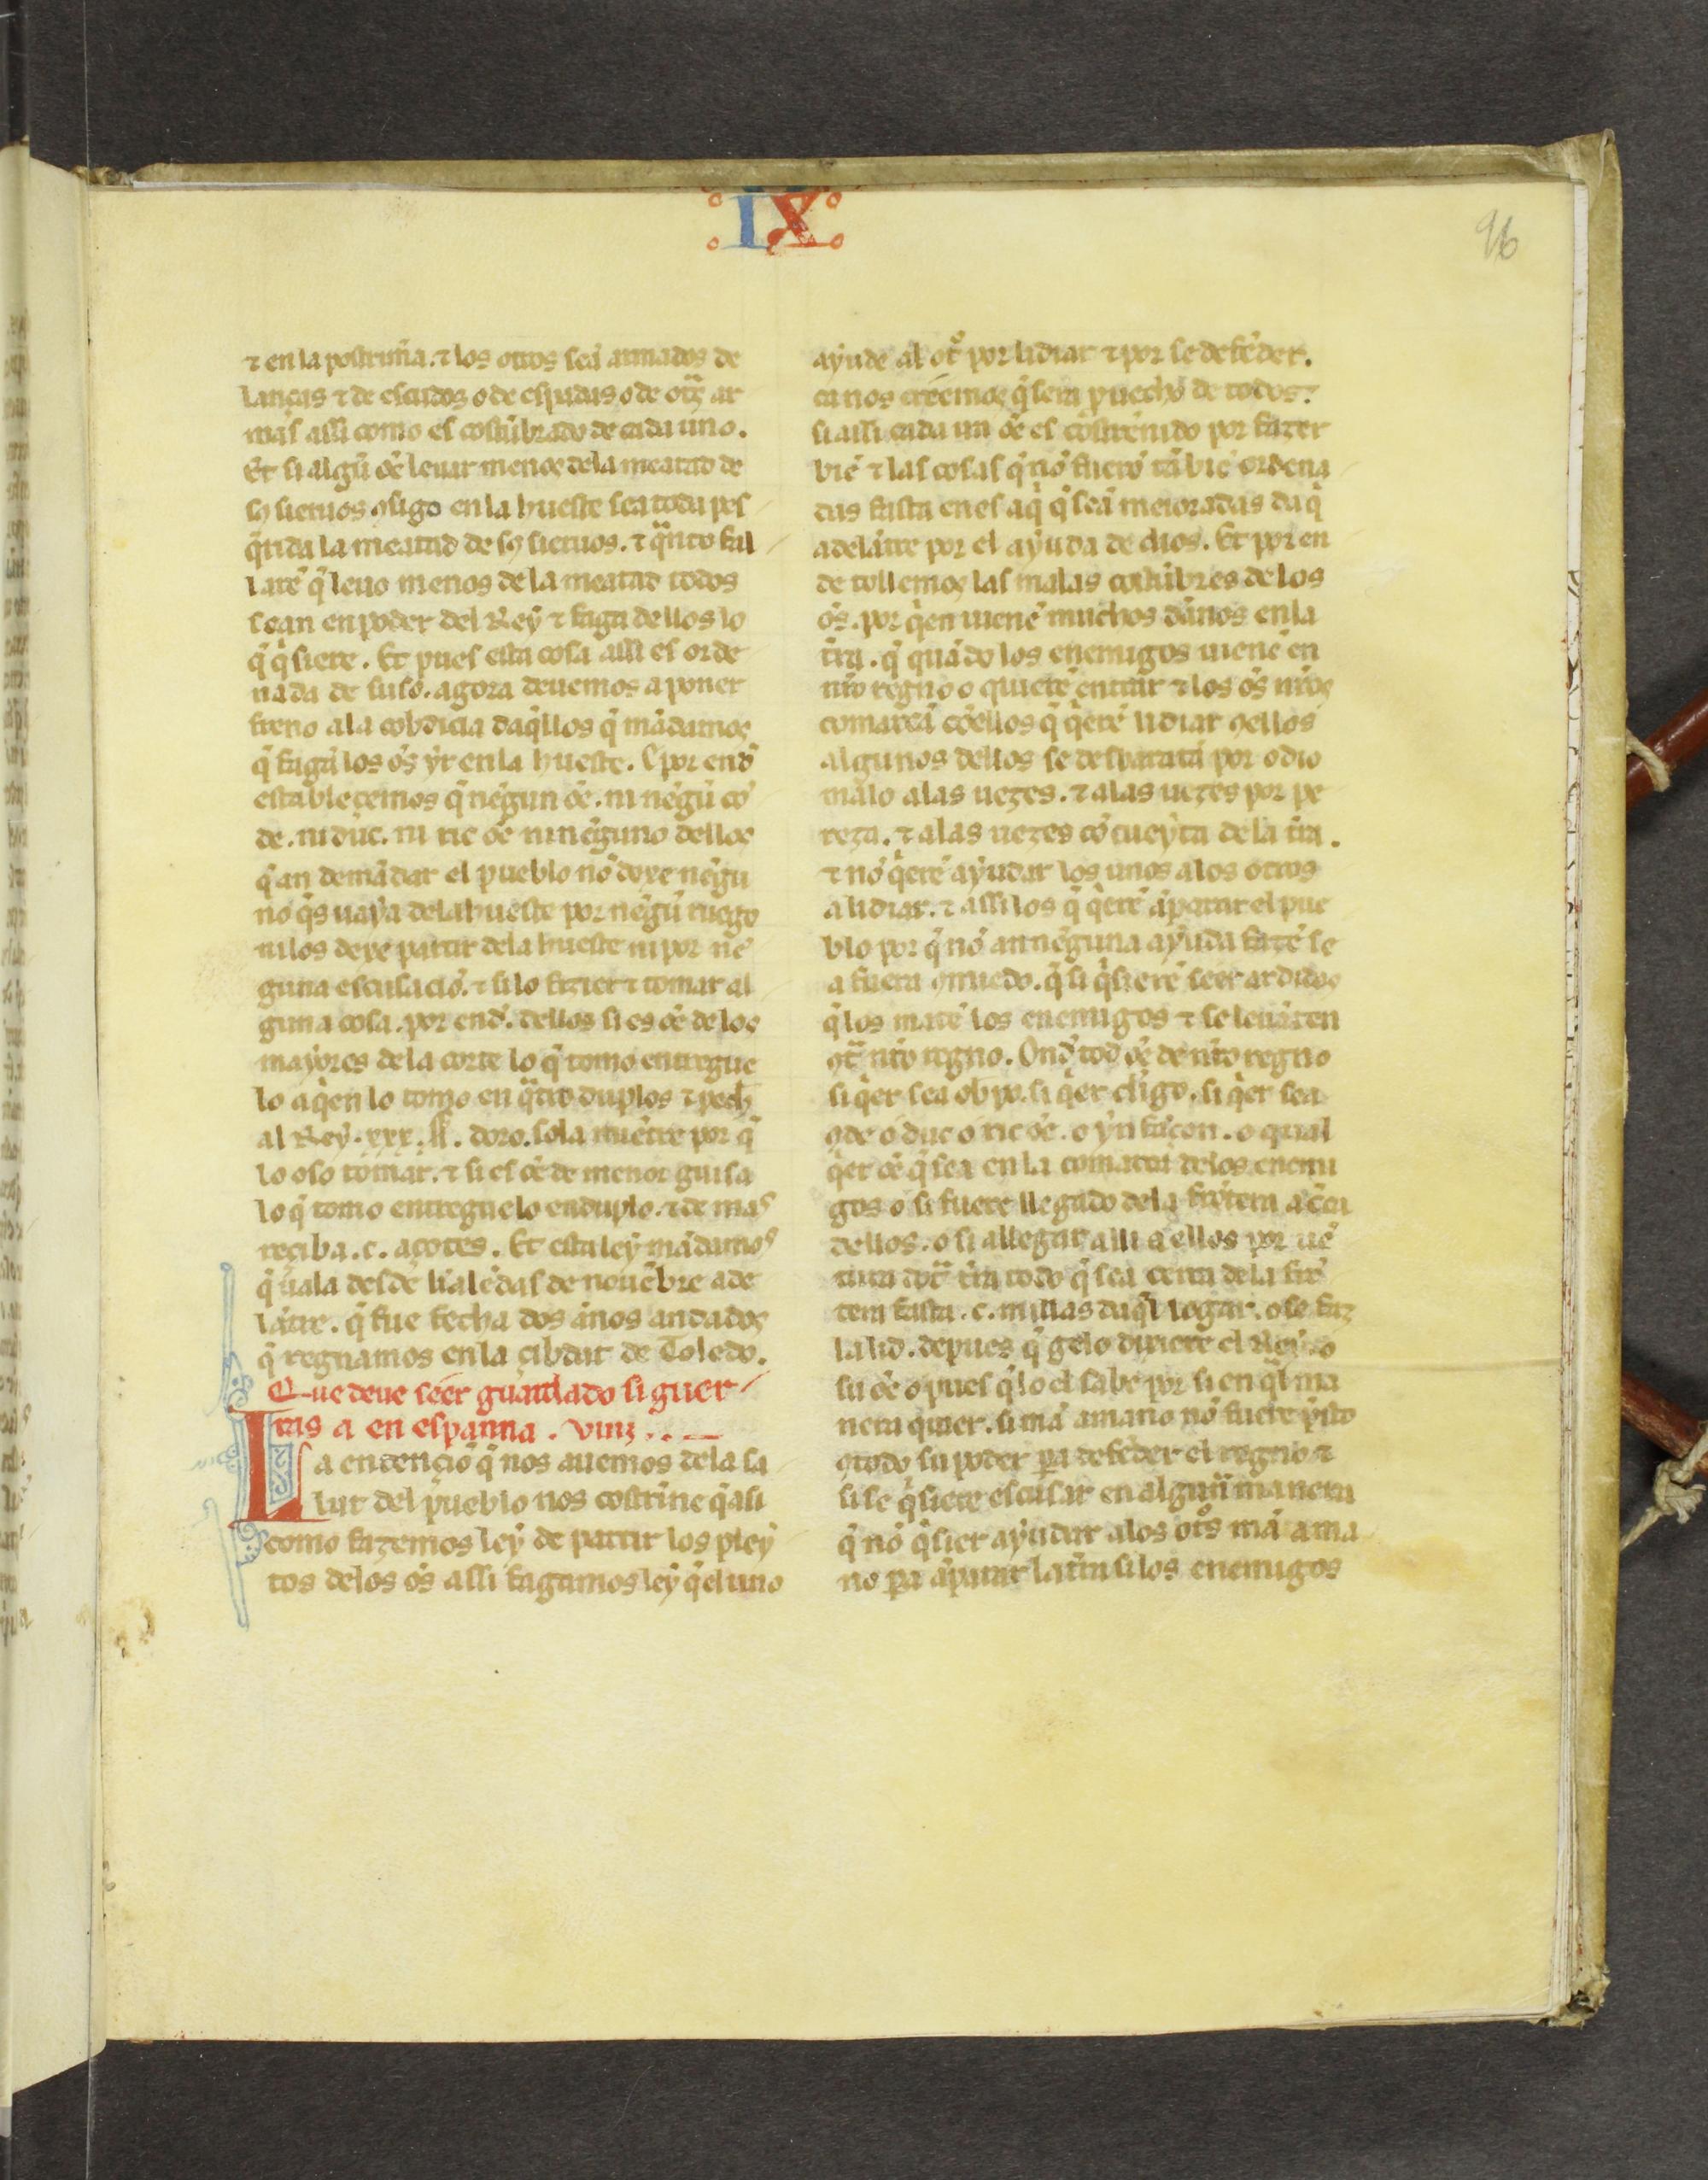 IX
96
⁊ en la postrima. ⁊ los otros seã armados de
lanças ⁊ de escudos o de espadas o de otrͣs ar
mas assi como es costũbrado de cada uno.
Et si algũ oẽ leuar menos dela meatad de
sus sieruos 9sigo en la hueste sea toda pes
q̃rida la meatad de sus sieruos. ⁊ qͣnto fal
larẽ q̃ leuo menos de la meatad todos
sean en poder del Rey ⁊ faga dellos lo
q̃ q̃siere. Et pues esta cosa assi es orde
nada de suso. agora deuemos a poner
freno ala cobdicia daq̃llos q̃ mãdamos
q̃ fagã los oẽs yr en la hueste. E por end̃
estableçemos q̃ nẽgun oẽ. ni nẽgũ cõ
de. ni duc. ni ric oẽ ni nẽguno dellos
q̃ an demãdar el pueblo nõ dexe nẽgu
no q̃s uaya dela hueste por nẽgũ ruego
ni los dexe partir dela hueste ni por nẽ
guna escusaciõ. ⁊ si lo fizier ⁊ tomar al
guna cosa. por end̃. dellos si es oẽ de los
mayores de la corte lo q̃ tomo entregue
lo a q̃en lo tomo en qͣtro duplos ⁊ pech
al Rey. xxx. ll. doro. sola muerte por q̃
lo oso tomar. ⁊ si es oẽ de menor guisa
lo q̃ tomo entreguelo en duplo. ⁊ de mas
reçiba. c. açotes. Et esta ley mãdamos
q̃ uala desde kalẽdas de nouẽbre ade
lãtre. q̃ fue fecha dos ãnos andados
q̃ regnamos en la çibdat de Toledo.
Que deue seer guardado si guer
ras a en espanna. viiij. . .
La entençiõ q̃ nos auemos dela sa
lut del pueblo nos costrine q̃ asi
como fazemos ley de partir los pley
tos delos oẽs assi fagamos ley q̃ el uno
ayude al otͦ por lidiar ⁊ por se defẽder.
ca nos creemos q̃ sera puecho de todos.
si assi cada un oẽ es costrenido por fazer
biẽ ⁊ las cosas q̃ nõ fuerõ tã biẽ ordena
das fasta en es aq̃ q̃ seã meioradas daq̃
adelãtre por el ayuda de dios. Et por en
de tollemos las malas costũbres de los
oẽs. por q̃en uienẽ muchos dãnos en la
tr̃ra. q̃ quãdo los enemigos uienẽ en
nr̃o regno o quierẽ entrar ⁊ los oẽs nr̃os
comarcã cõellos q̃ q̃erẽ lidiar 9ellos
algunos dellos se desbaratã por odio
malo alas uezes. ⁊ alas uezes por pe
reza. ⁊ alas uezes cõ cueyta de la tr̃ra.
⁊ nõ q̃erẽ ayudar los unos alos otros
a lidiar. ⁊ assi los q̃ q̃erẽ ãparar el pue
blo por q̃ nõ an nẽguna ayuda fazẽ se
a fuera 9miedo. q̃ si q̃sierẽ seer ardidos
q̃ los matẽ los enemigos ⁊ se leuãten
9tͣ nr̃o regno. Ond̃ tod oẽ de nr̃o regno
si q̃er sea ob̃po. si q̃er cl̃igo. si q̃er sea
9de o duc o ric oẽ. o ynfãçon. o qual
q̃er oẽ q̃ sea en la comarca delos enemi
gos o si fuere llegado dela frõtera a cerca
dellos. o si allegar alli a ellos por uẽ
tura dotͣ tr̃ra todo q̃ sea cerca dela frõ
tera fasta. c. millas daq̃l logar. o se faz
la lid. depues q̃ gelo dixiere el Rey o
su oẽ o pues q̃ lo el sabe por si en qͣl ma
nera quier. si mã a mano nõ fuere p̃sto
9todo su poder pͣa defẽder el regno ⁊
si se q̃siere escusar en algunͣ manera
q̃ nõ q̃sier ayudar alos otͦs mã a ma
no pͣa ãparar la tr̃ra si los enemigos